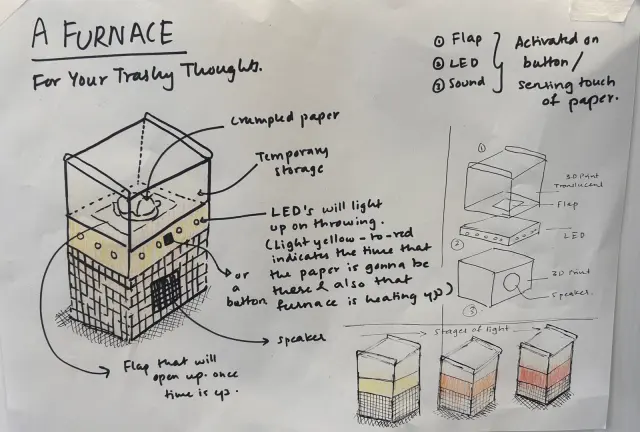 A FURNACE
For Your Trashy Thoughts.
① Flap
② LED
③ Sound
Activated on
button/
sensing touch
of paper.
crumpled paper
Temporary
storage
LED's will light
up on throwing.
(Light yellow-to-red
indicates the time that
the paper is gonna be
there & also that
furnace is heating up)
or
a
button
speaker
Flap that will
open up once
time is up.
①
3D Print
Translucent
Flap
②
LED
3D Print
Speaker.
③
Stages of light